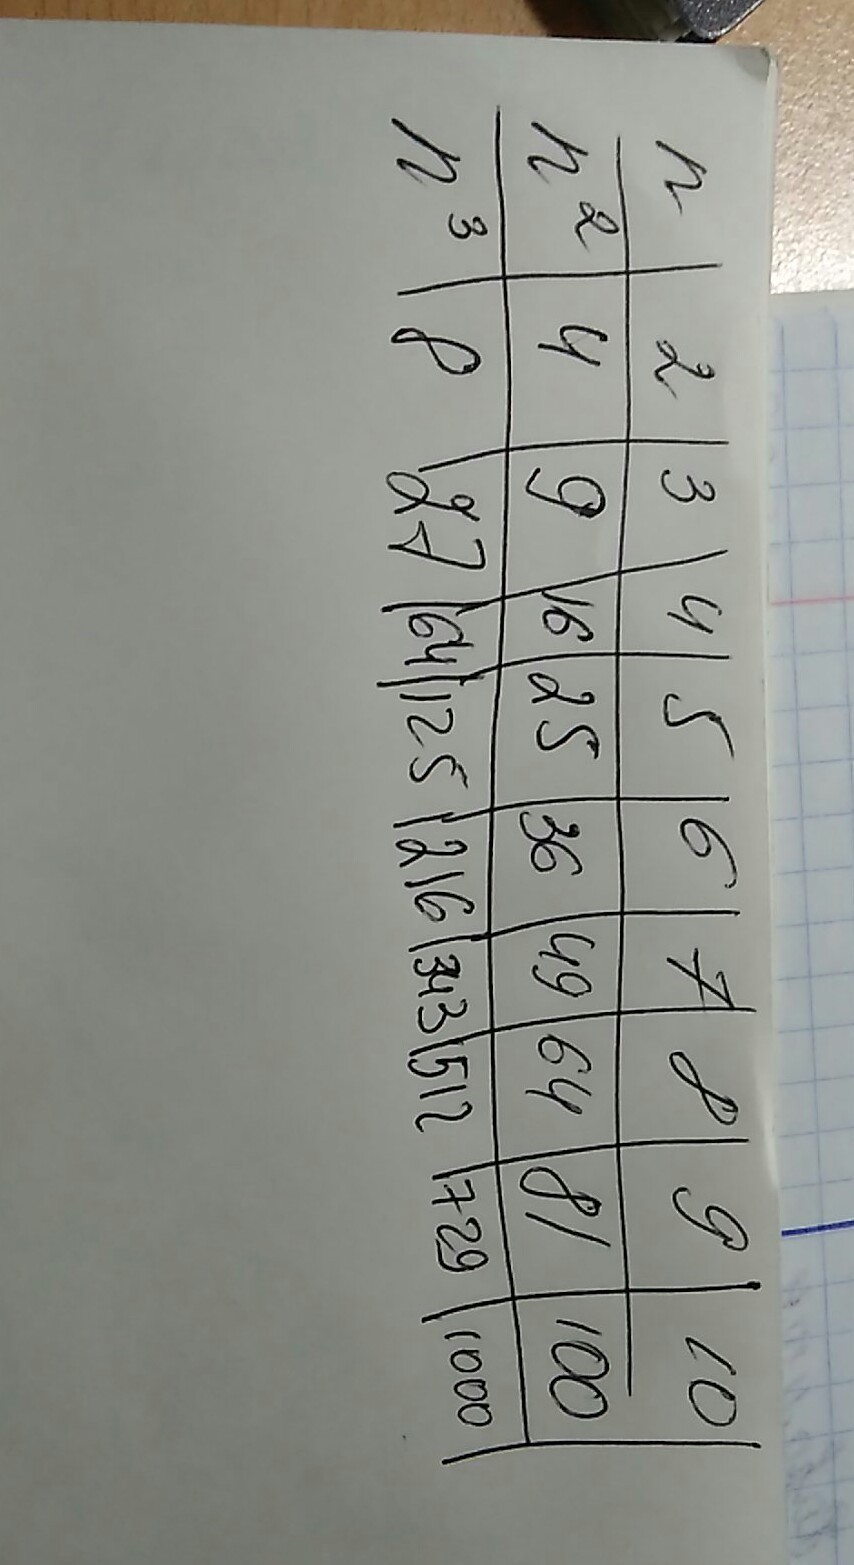 n 2 3 4 5 6 7 8 9 10
n² 4 9 16 25 36 49 64 81 100
n³ 8 27 64 125 216 343 512 729 1000